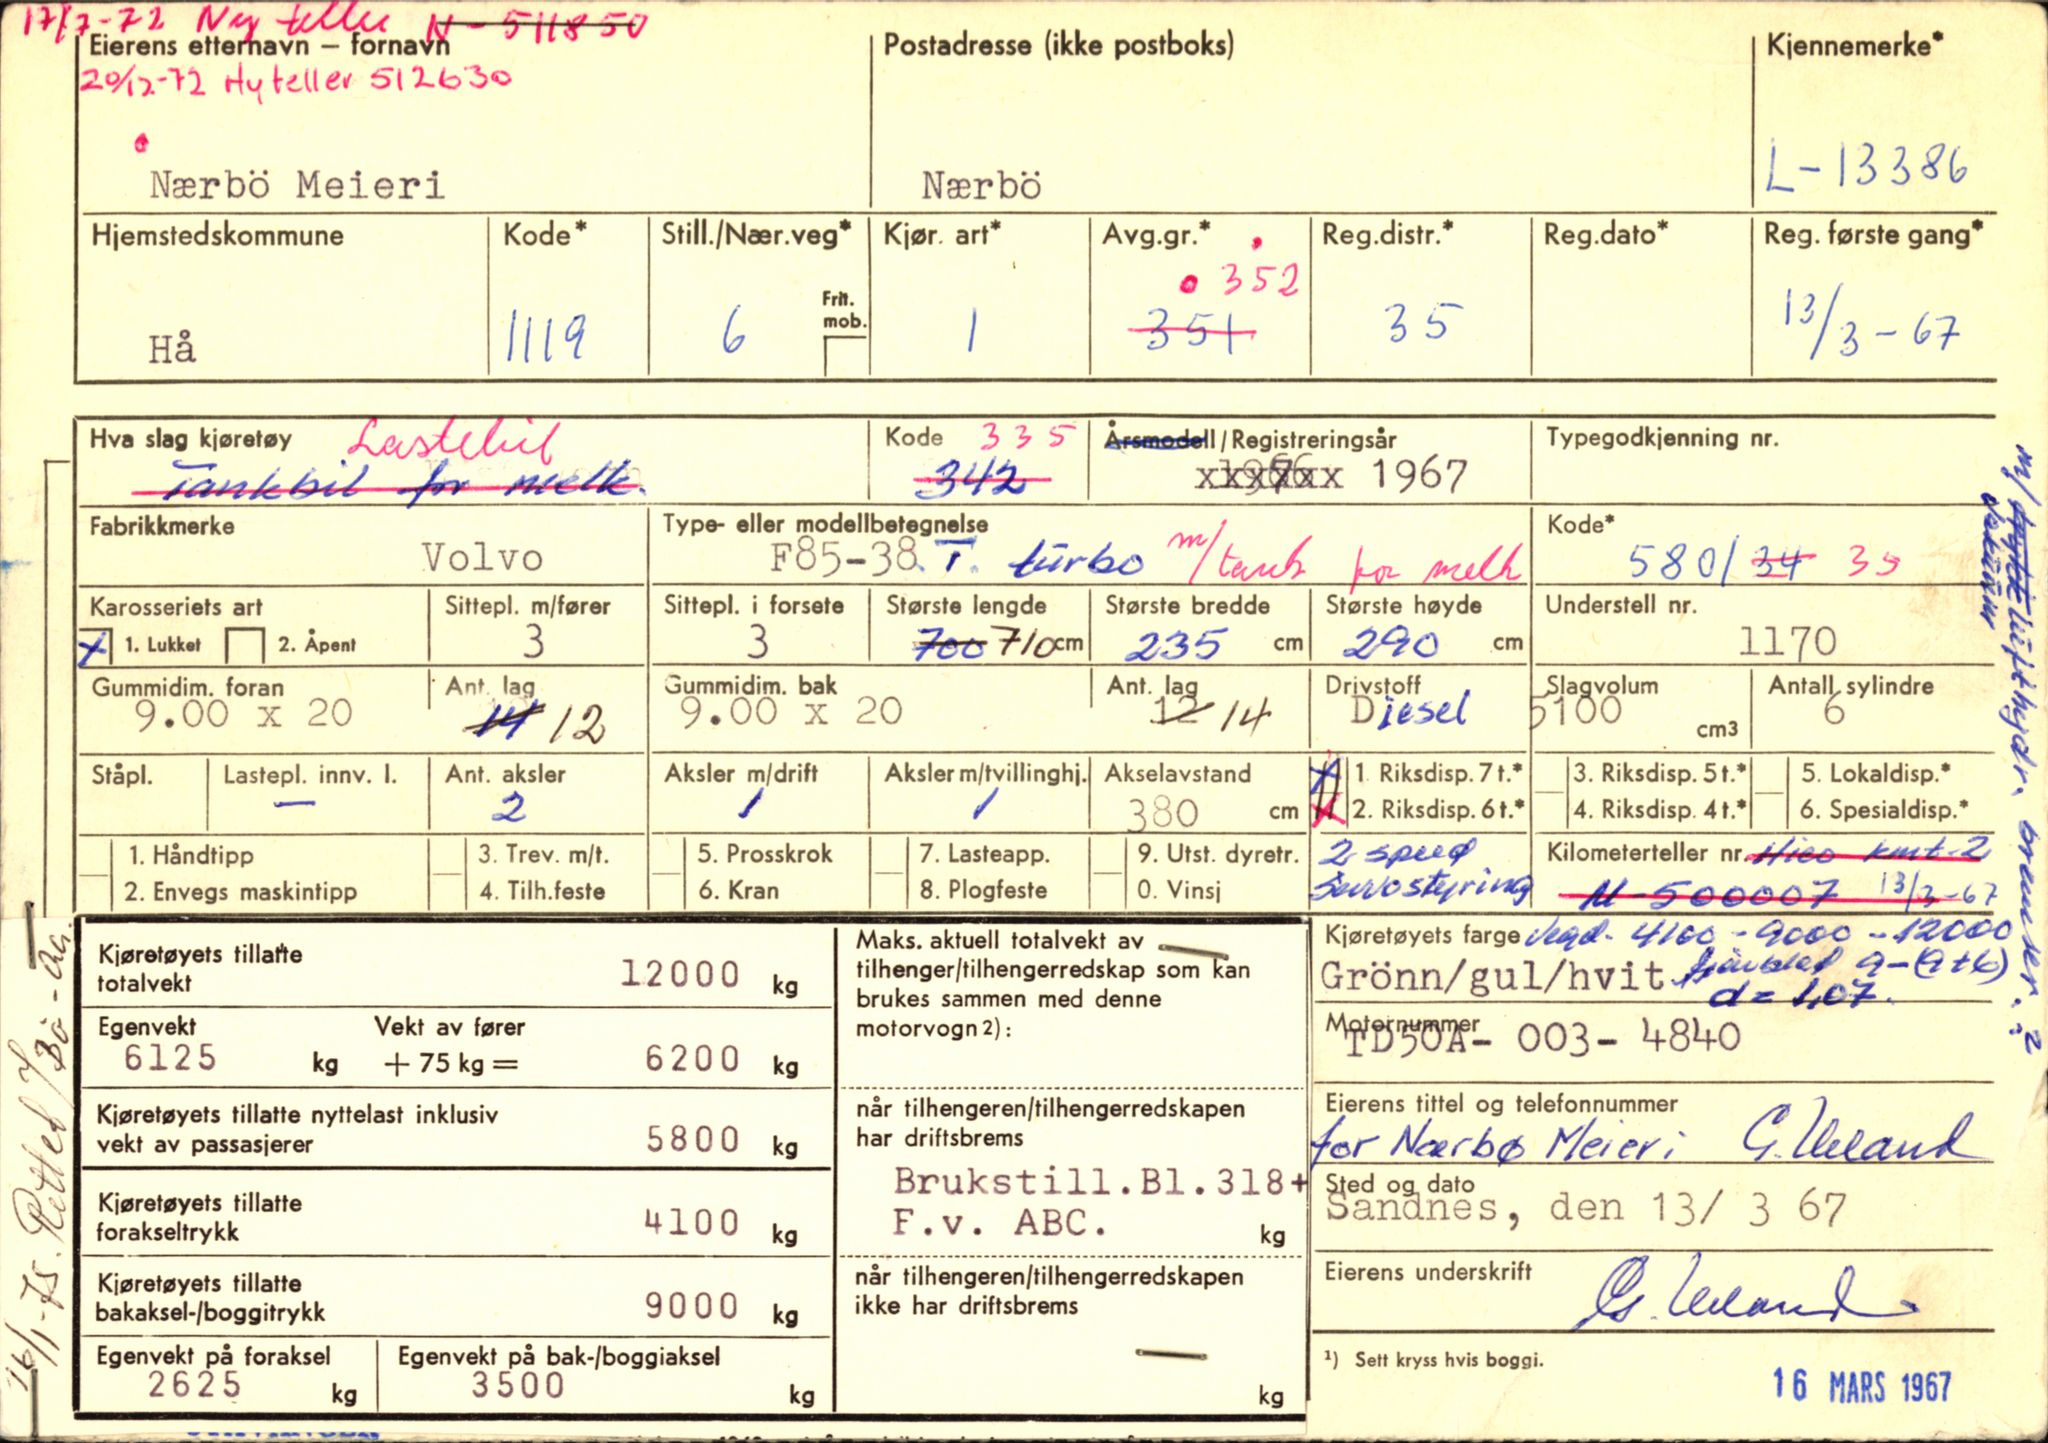 17/7-72 Ny teller N-511850
Eierens etternavn – fornavn
20/12-72 Ny teller 512630
Nærbö Meieri
Postadresse (ikke postboks)
Nærbö
Kjennemerke*
L-13386
Hjemstedskommune Kode* Still./Nær.veg* Kjør. art* Avg.gr.* Reg.distr.* Reg.dato* Reg. første gang*
352
Frit.
mob.
Hå 1119 6 1 351 35 13/3-67
Hva slag kjøretøy Lastebil Kode 335 Årsmodell/Registreringsår Typegodkjenning nr.
Tankbil for melk. 342 1967
Fabrikkmerke Type- eller modellbetegnelse Kode*
Volvo F85-38.T. turbo m/tank for melk 580/34 35
Karosseriets art Sittepl. m/fører Sittepl. i forsete Største lengde Største bredde Største høyde Understell nr.
x 1. Lukket 2. Åpent 3 3 700 710 cm 235 cm 290 cm 1170
Gummidim. foran Ant. lag Gummidim. bak Ant. lag Drivstoff Slagvolum Antall sylindre
9.00 x 20 14 12 9.00 x 20 12 14 Diesel 5100 cm3 6
Ståpl. Lastepl. innv. l. Ant. aksler Aksler m/drift Aksler m/tvillinghj. Akselavstand 1. Riksdisp. 7 t.* 3. Riksdisp. 5 t.* 5. Lokaldisp.*
— 2 1 1 380 cm 2. Riksdisp. 6 t.* 4. Riksdisp. 4 t.* 6. Spesialdisp.*
1. Håndtipp 3. Trev. m/t. 5. Prosskrok 7. Lasteapp. 9. Utst. dyretr. 2 speed Kilometerteller nr. Hico kmt-2
2. Envegs maskintipp 4. Tilh.feste 6. Kran 8. Plogfeste 0. Vinsj Servostyring N-500007 13/3-67
Kjøretøyets tillatte
totalvekt 12000 kg
Egenvekt Vekt av fører
6125 kg + 75 kg = 6200 kg
Kjøretøyets tillatte nyttelast inklusiv
vekt av passasjerer 5800 kg
Kjøretøyets tillatte
forakseltrykk 4100 kg
Kjøretøyets tillatte
bakaksel-/boggitrykk 9000 kg
Egenvekt på foraksel Egenvekt på bak-/boggiaksel
2625 kg 3500 kg
Maks. aktuell totalvekt av
tilhenger/tilhengerredskap som kan
brukes sammen med denne
motorvogn 2):
når tilhengeren/tilhengerredskapen
har driftsbrems
Brukstill.Bl.318+
F.v. ABC. kg
når tilhengeren/tilhengerredskapen
ikke har driftsbrems
kg
Kjøretøyets farge Vegd. 4100-9000-12000
Grönn/gul/hvit a-(a+b)
d= 1,07.
Motornummer
TD50A- 003- 4840
Eierens tittel og telefonnummer
for Nærbø Meieri
Sted og dato
Sandnes, den 13/ 3 67
Eierens underskrift
1) Sett kryss hvis boggi.
16 MARS 1967
16/1-75. Rettet
m/ lufthydr. bremser.